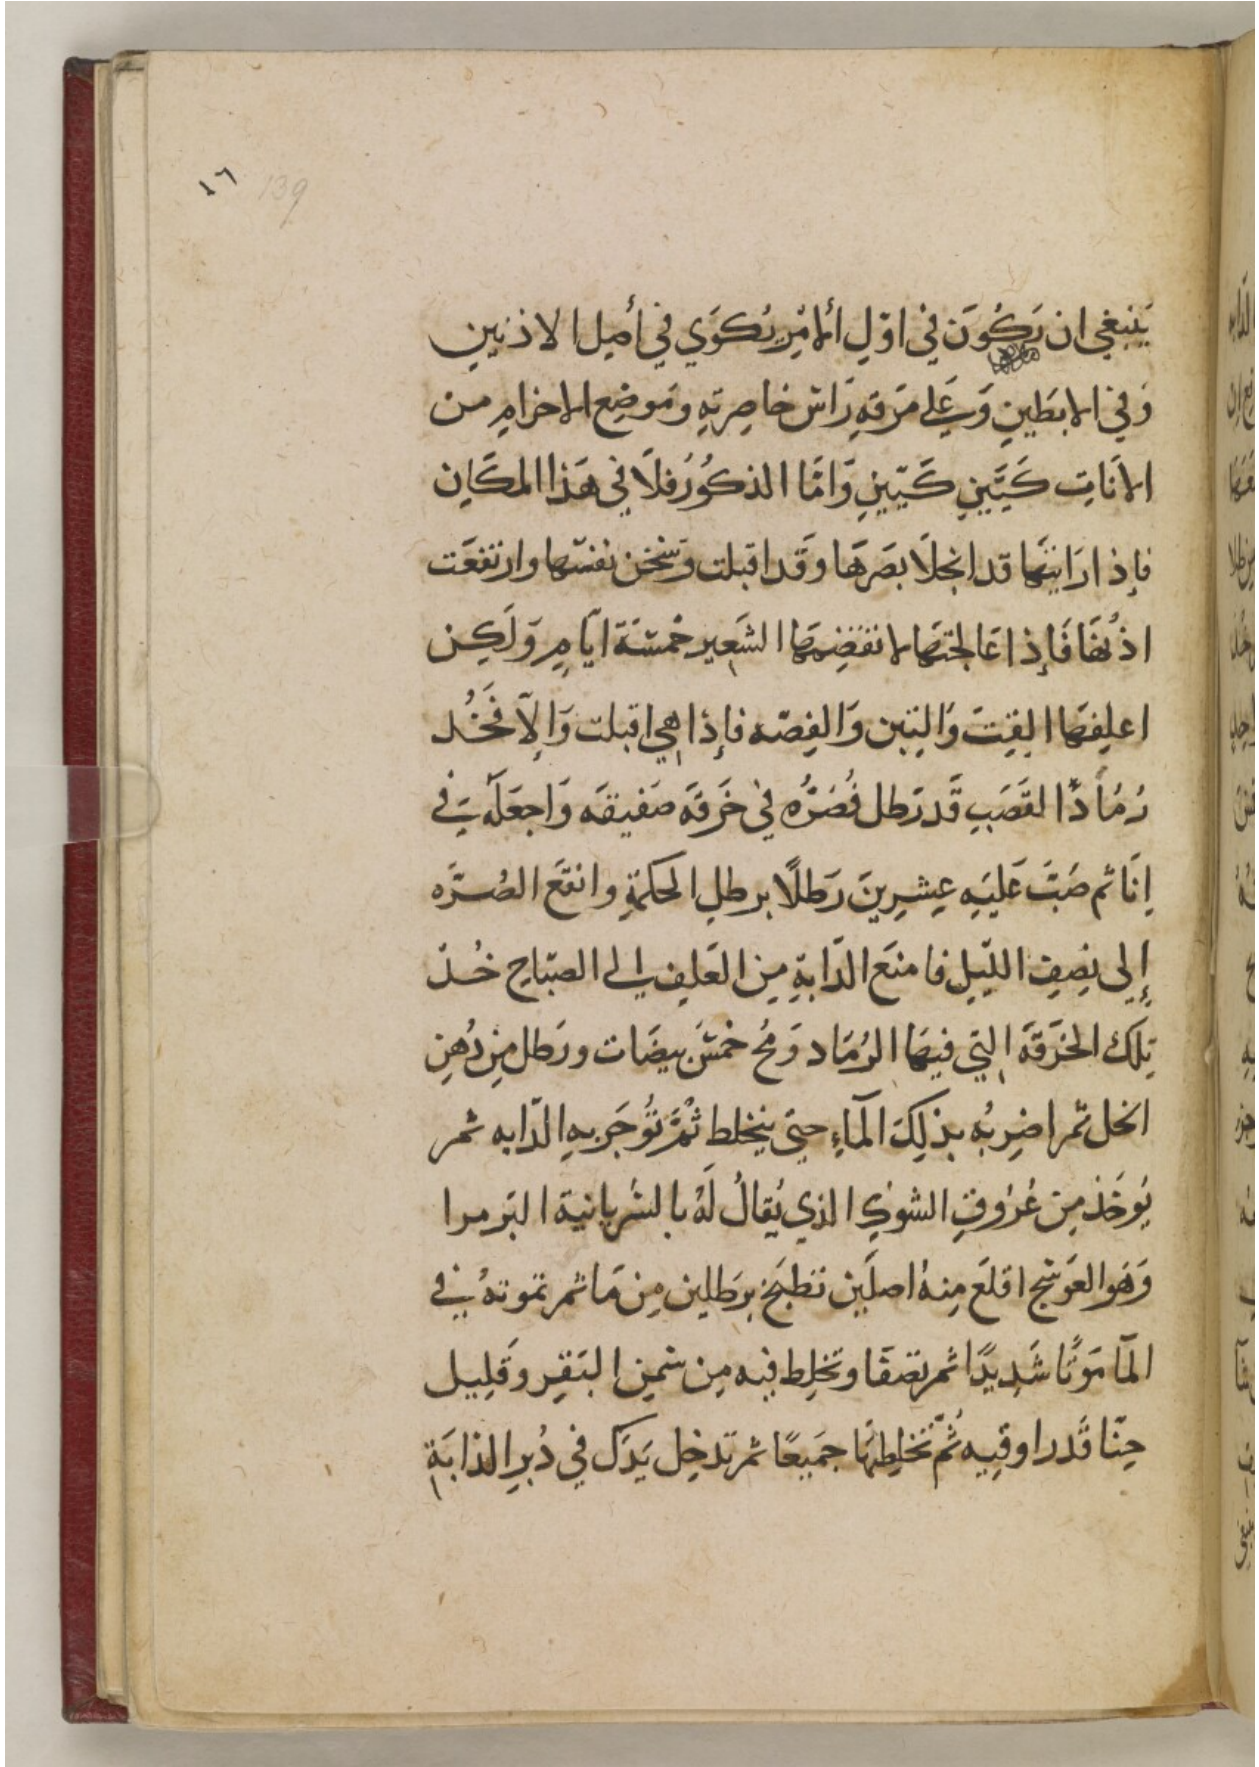 ١٦ 139
يَنبَغي ان يَكُونَ في اوّلِ الامْرِ يُكوَي في أصِل الاذنَينِ
وَفي الابطَينِ وَعَلي مَرَقهِ رَاسْ خاصِرتِهِ وَمَوضِع الاحزامِ من
الانَاثِ كَيَّتَينِ كَيّتَينِ وَامّا الذكُورُ فلَا في هَذا المكَانِ
فإذا رَايتَها قد انجلَا بصَرهَا وَقَد اقبلت وَسَخن نفسَها وارتفعَت
اذُنهَا فَإذا عَالجتهَا لا تقضِمهَا الشَعِير خمسَة ايَامٍ وَلَكِن
اعلِفهَا القِتَ وَالتِبن وَالفِصّه فإذا هي اقبلت وَإلّا فَخُد
رُمَادًا القَصَبِ قَدرَطل فُصَرُّه في خَرقَه صَفيقَه وَاجعَلهَ في
اِنَا ثم صَبَّ عَليَهِ عِشرِينَ رَطلًا برطلِ الحكمَةِ وانقَع الصُرَّه
إِلى نِصِفِ الليّلِ فامنَع الدّابَةِ مِن العَلفِ إلي الصّبَاحِ خُذ
تِلكَ الخَرَقَة التِي فيهَا الرُمَاد وَمُح خمسَ بيضَات ورَطل مِن دُهنِ
الخل ثم اضِربُه بذلِكَ المآءِ حتي يختلط ثُمَّ تُوجَر بهِ الدّابه ثمر
يُوخَذ مِن عُرُوقِ الشوكِ الذي يُقالُ لَهُ بالسُريانية البَرمرا
وَهَو العَوسَج اقلَع مِنهُ اصلَين تطبَخ برَطلين مِن مَا ثمر تموتهُ في
المآ مَوتًا شَدِيدًا ثمر تصفَا وتخلِط فيه مِن سَمنِ البَقرِ وَقَلِيل
حِنّا قَدر اوقيه ثُمّ تخلِطهَا جَميعًا ثمر تدخِل يَدَك في دُبرِ الدابَةِ